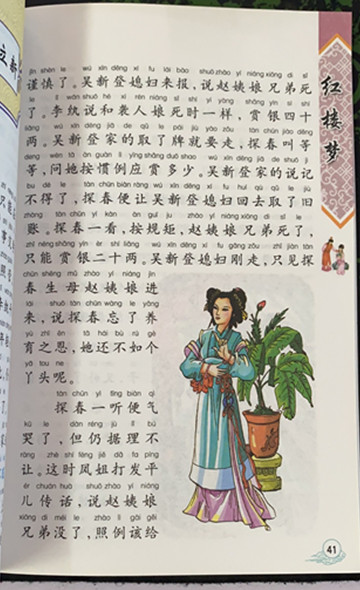 红楼梦
jǐn shèn le wú xīn dēng xí fu lái bào shuō zhào yí niáng xiōng di sǐ
谨慎了。吴新登媳妇来报，说赵姨娘兄弟死
le lǐ wán shuō hé xí rén niáng sǐ shí yí yàng shǎng yín sì shí
了。李纨说和袭人娘死时一样，赏银四十
liǎng wú xīn dēng jiā de qǔ le pái jiù yào zǒu tàn chūn jiào děng
两。吴新登家的取了牌就要走。探春叫等
deng wèn tā àn guàn lì yīng shǎng duō shao wú xīn dēng jiā de shuō jì
等，问她按惯例应赏多少。吴新登家的说记
bu dé le tàn chūn biàn ràng wú xīn dēng xí fu huí qù qǔ le jiù
不得了，探春便让吴新登媳妇回去取了旧
zhàng tàn chūn yí kàn àn guī ju zhào yí niáng xiōng di sǐ le
账。探春一看，按规矩，赵姨娘兄弟死了，
zhǐ néng shǎng yín èr shí liǎng wú xīn dēng xí fu gāng zǒu zhǐ jiàn tàn
只能赏银二十两。吴新登媳妇刚走，只见探
chūn shēng mǔ zhào yí niáng jìn
春生母赵姨娘进
lái shuō tàn chūn wàng le yǎng
来，说探春忘了养
yù zhī ēn tā hái bù rú gè
育之恩，她还不如个
yā tou ne
丫头呢。
tàn chūn yì tīng biàn qì
探春一听便气
kū le dàn réng jù lǐ bú
哭了，但仍据理不
ràng zhè shí fèng jiě dǎ fa píng
让。这时凤姐打发平
ér chuán huà shuō zhào yí niáng
儿传话，说赵姨娘
xiōng di méi le zhào lì gāi gěi
兄弟没了，照例该给
41